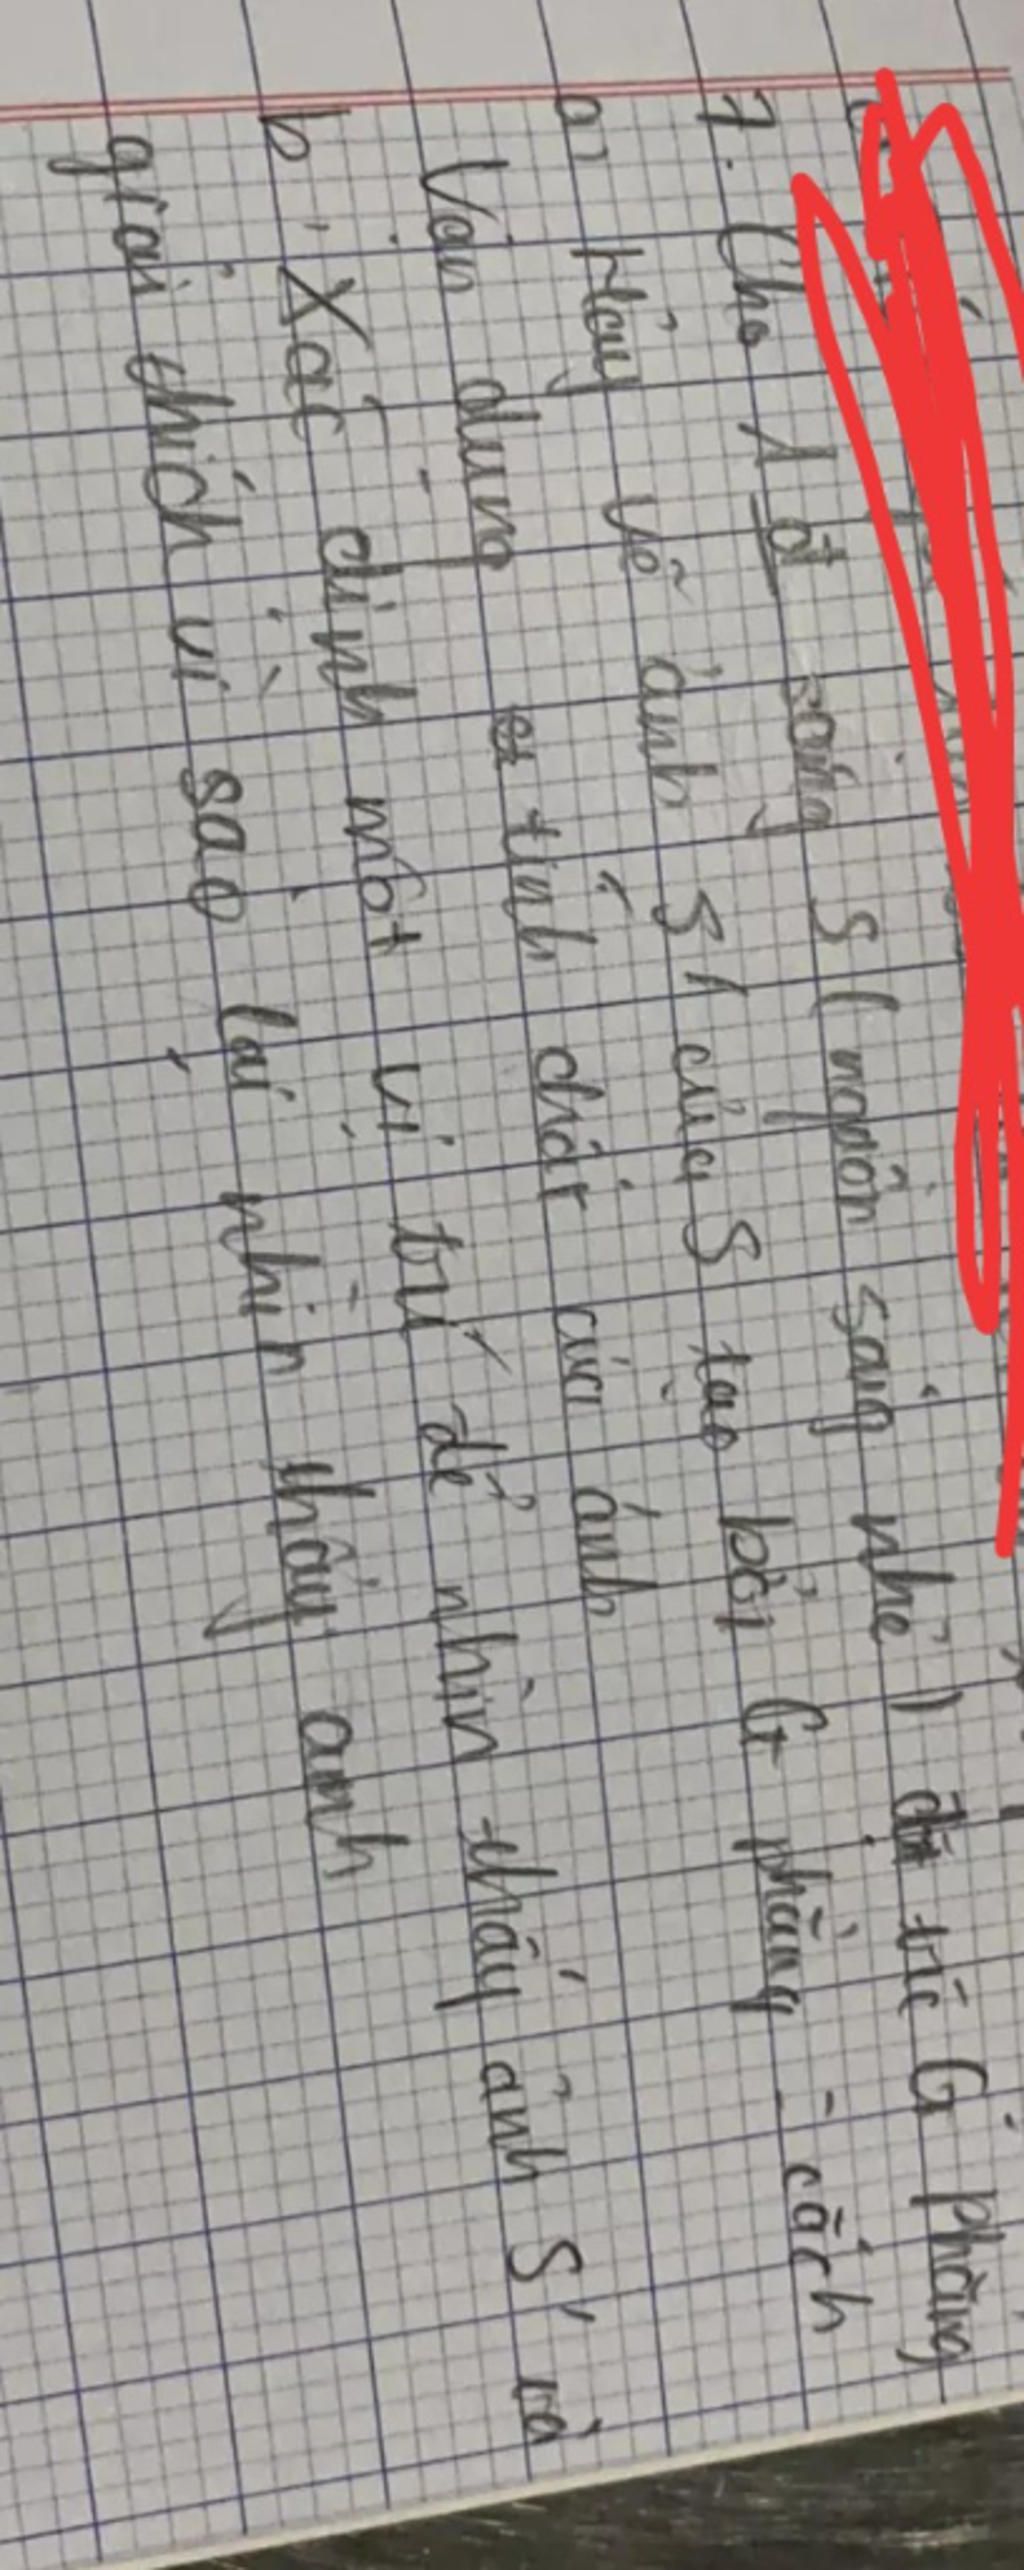 7. Cho 1 đ sáng S ( nguồn sáng nhỏ ) đặt trc G phẳng
a, Hãy vẽ ảnh S' của S tạo bởi G phẳng = cách
Vận dụng tính chất của ảnh
b, Xác định một vị trí để nhìn thấy ảnh S' và
giải thích vì sao lại nhìn thấy ảnh